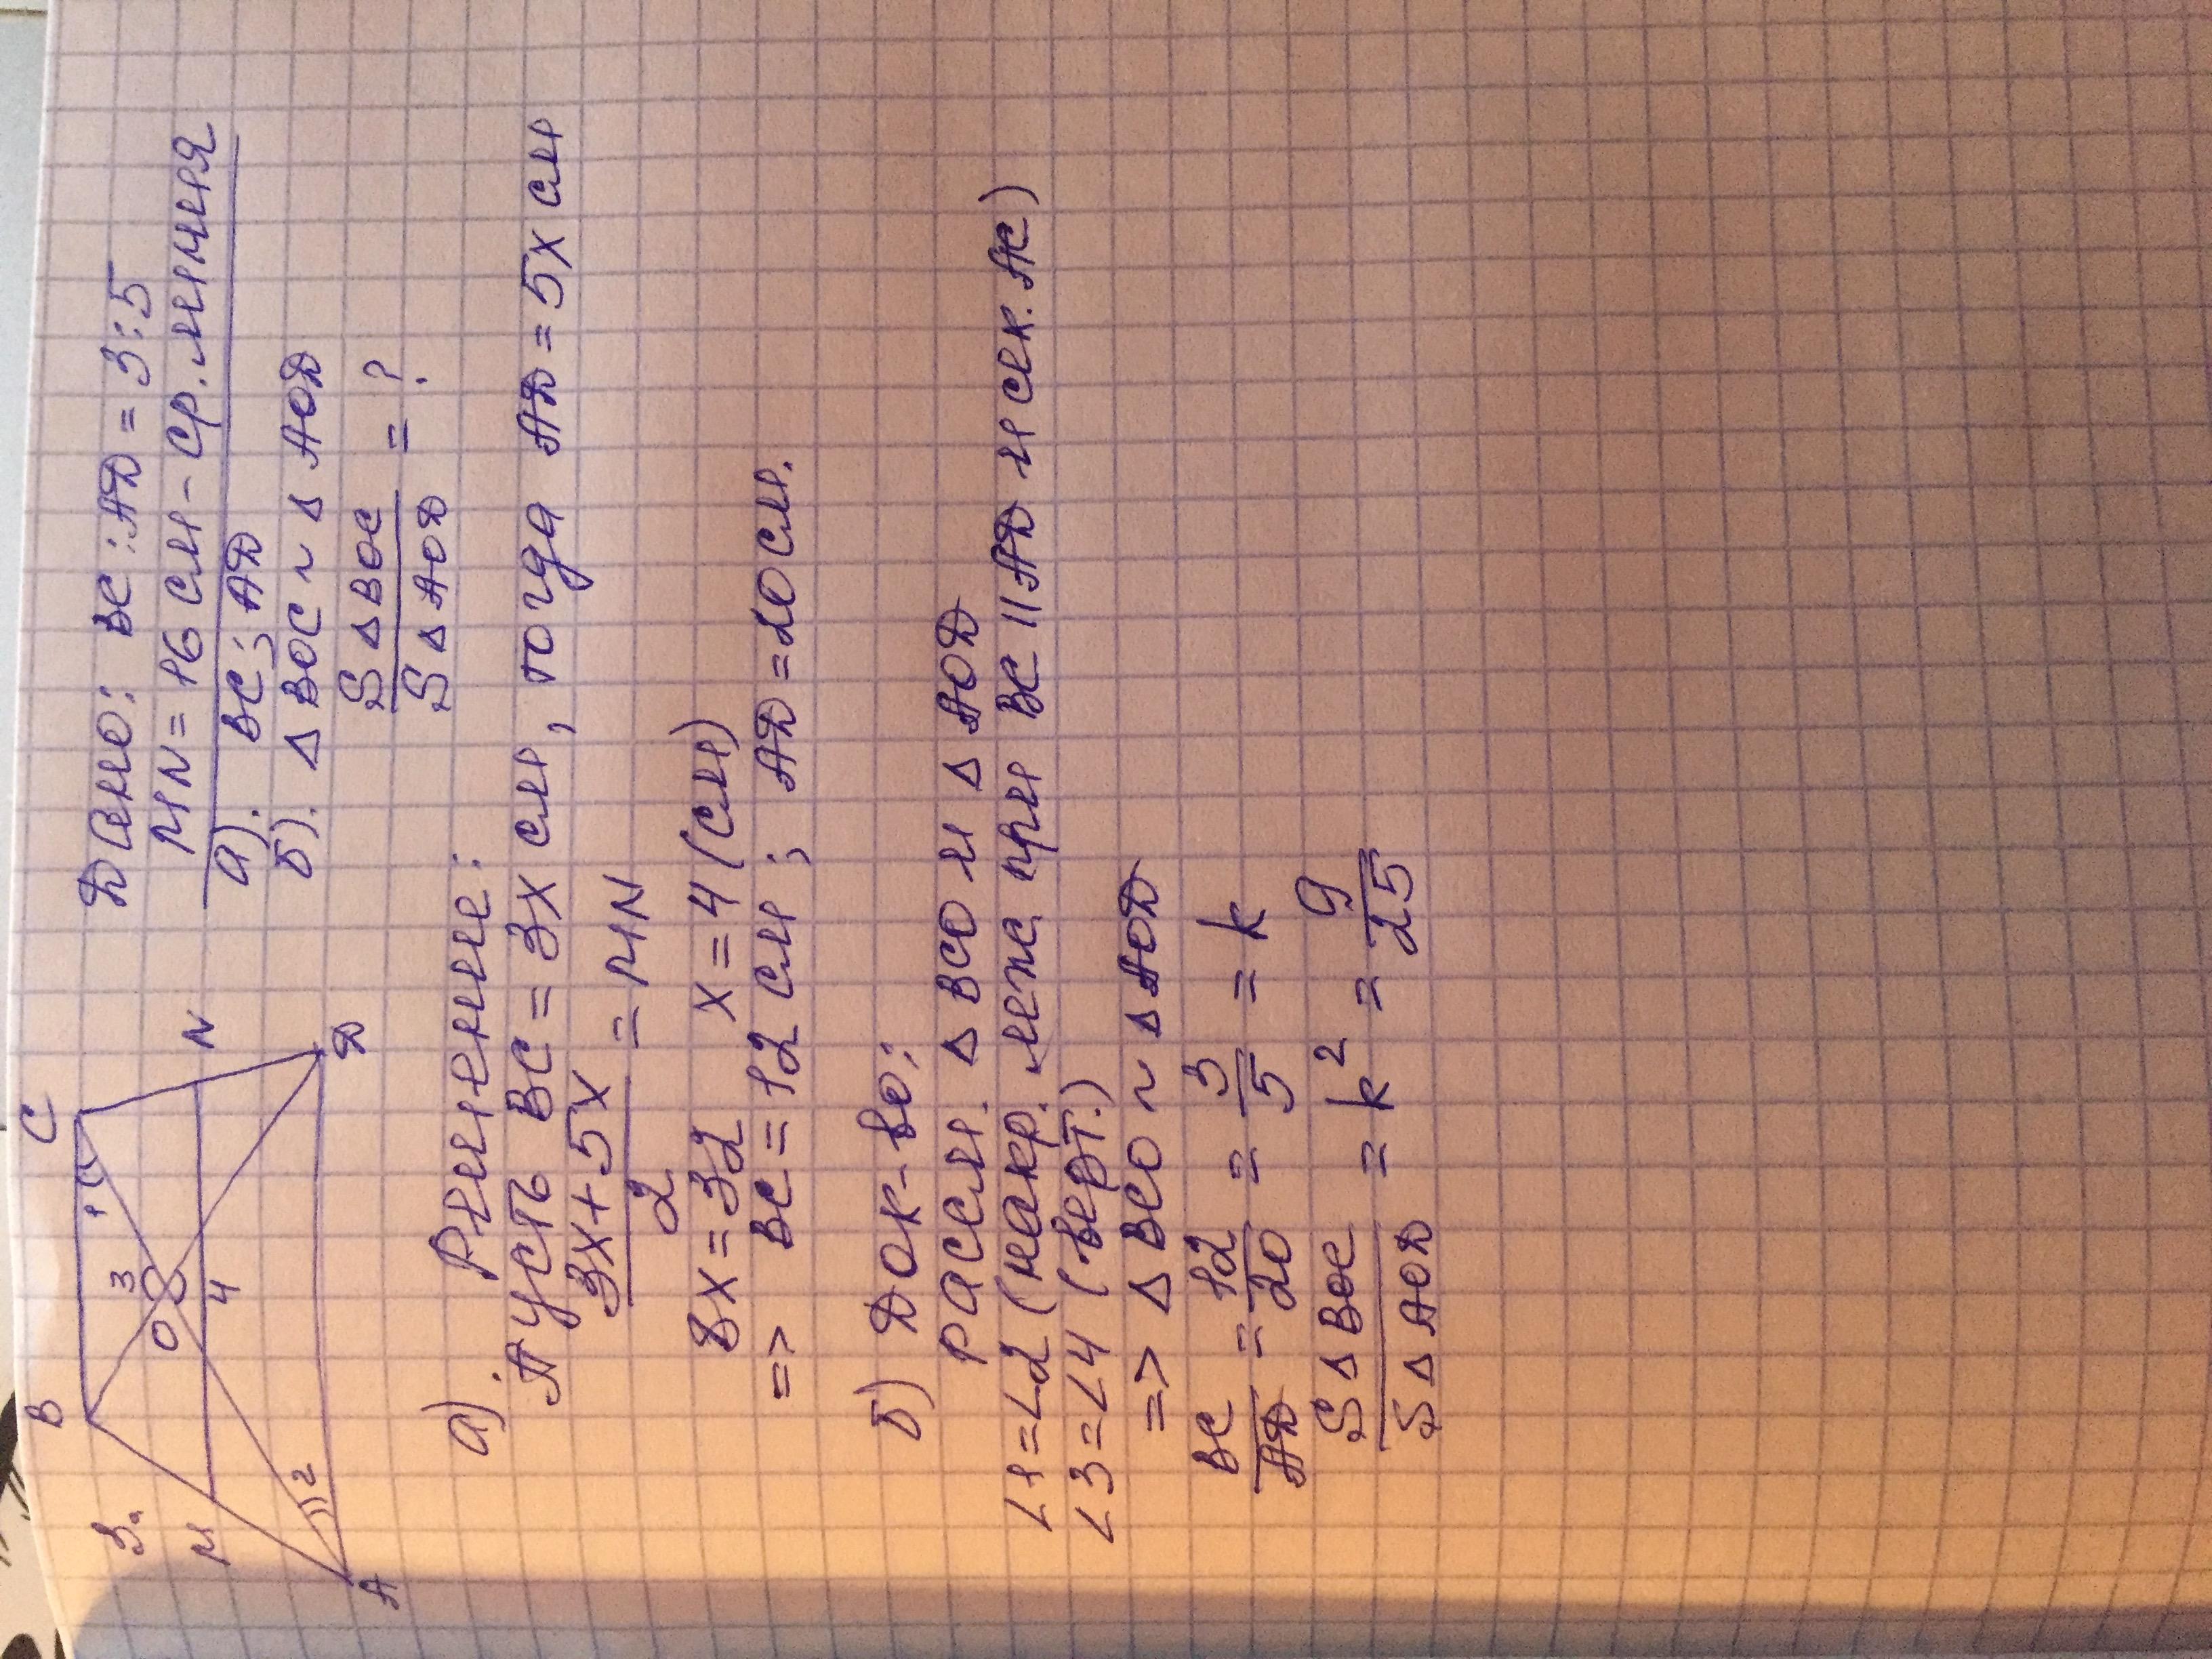 3.
B
C
1
3
O
M
N
4
2
A
Д
Дано: BC : AД = 3 : 5
MN = 16 см - ср. линия
а). BC ; AД
б). Δ BOC ~ Δ AOД
S Δ BOC / S Δ AOД = ?
Решение:
а).
Пусть BC = 3x см, тогда AД = 5x см
3x + 5x / 2 = MN
8x = 32 x = 4 (см)
=> BC = 12 см ; AД = 20 см.
б) Док-во:
Рассм. Δ BCO и Δ AOД
∠1 = ∠2 (накр. леж. при BC || AД и сек. AC)
∠3 = ∠4 (верт.)
=> Δ BCO ~ Δ AOД
BC / AД = 12 / 20 = 3 / 5 = k
S Δ BOC / S Δ AOД = k² = 9 / 25